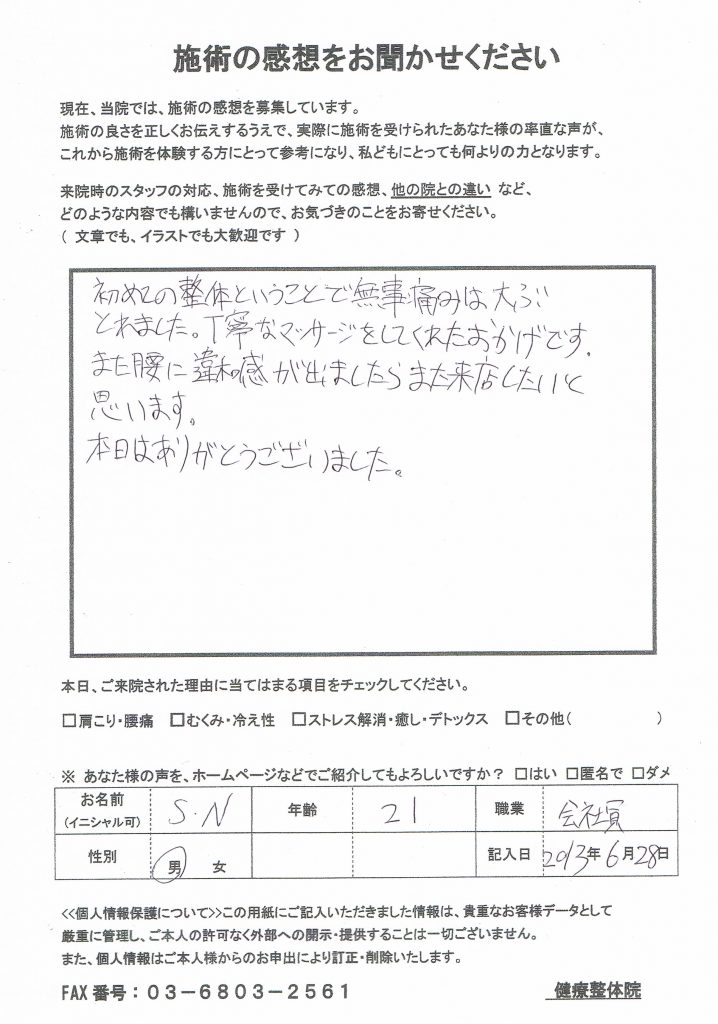 施術の感想をお聞かせください
現在、当院では、施術の感想を募集しています。
施術の良さを正しくお伝えするうえで、実際に施術を受けられたあなた様の率直な声が、
これから施術を体験する方にとって参考になり、私どもにとっても何よりの力となります。
来院時のスタッフの対応、施術を受けてみての感想、他の院との違い など、
どのような内容でも構いませんので、お気づきのことをお寄せください。
( 文章でも、イラストでも大歓迎です )
初めての整体ということで無事痛みは大ぶ
とれました。丁寧なマッサージをしてくれたおかげです.
また腰に違和感が出ましたらまた来店したいと
思います。
本日はありがとうございました。
本日、ご来院された理由に当てはまる項目をチェックしてください。
□肩こり・腰痛 □むくみ・冷え性 □ストレス解消・癒し・デトックス □その他( )
※ あなた様の声を、ホームページなどでご紹介してもよろしいですか? □はい □匿名で □ダメ
お名前 (イニシャル可) S.N 年齢 21 職業 会社員
性別 男 女 記入日 2013年 6月28日
<<個人情報保護について>>この用紙にご記入いただきました情報は、貴重なお客様データとして
厳重に管理し、ご本人の許可なく外部への開示・提供することは一切ございません。
また、個人情報はご本人様からのお申出により訂正・削除いたします。
FAX 番号：０３－６８０３－２５６１ 健療整体院